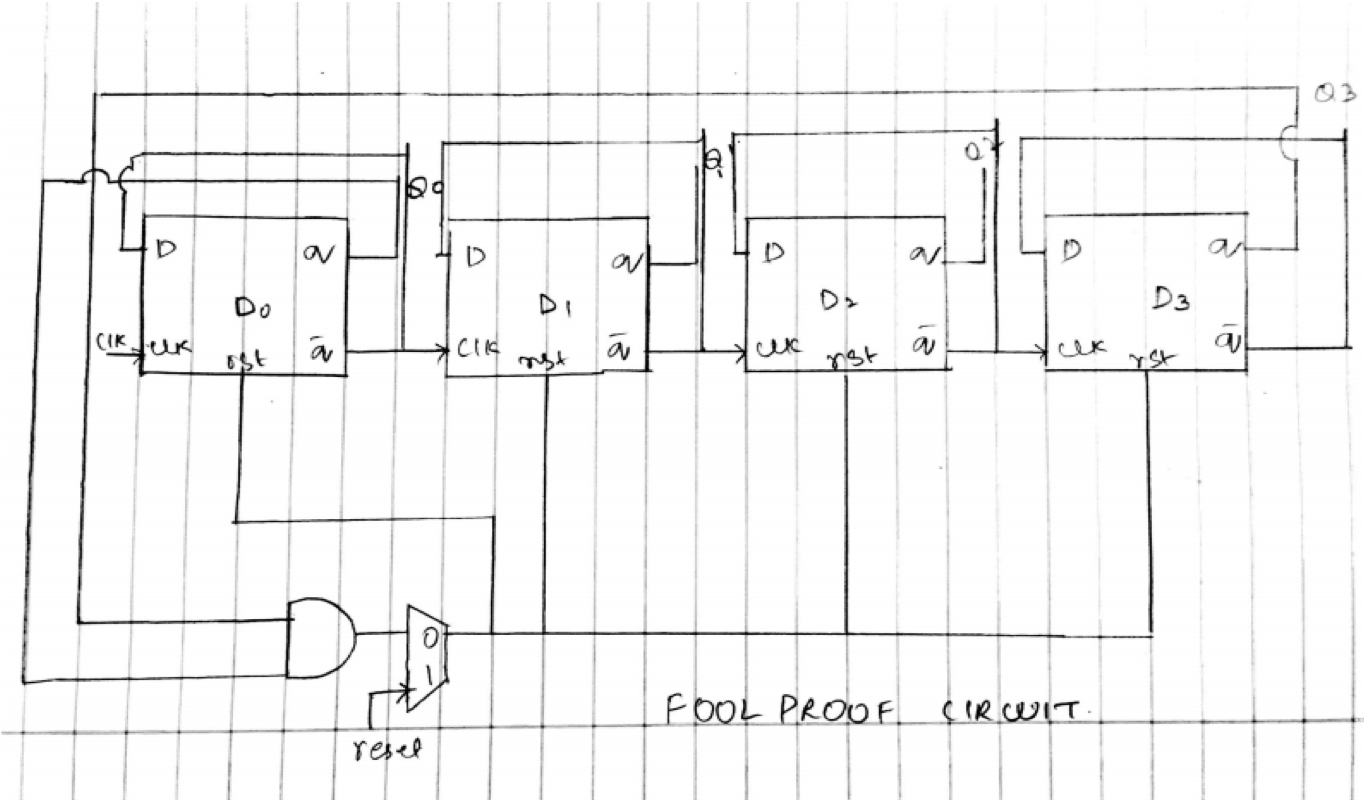 Q3
Q0
Q1
Q2
D
q
D0
CLK
CLK
rst
q̄
D
q
D1
CLK
rst
q̄
D
q
D2
CLK
rst
q̄
D
q
D3
CLK
rst
q̄
0
1
reset
FOOL PROOF CIRCUIT.